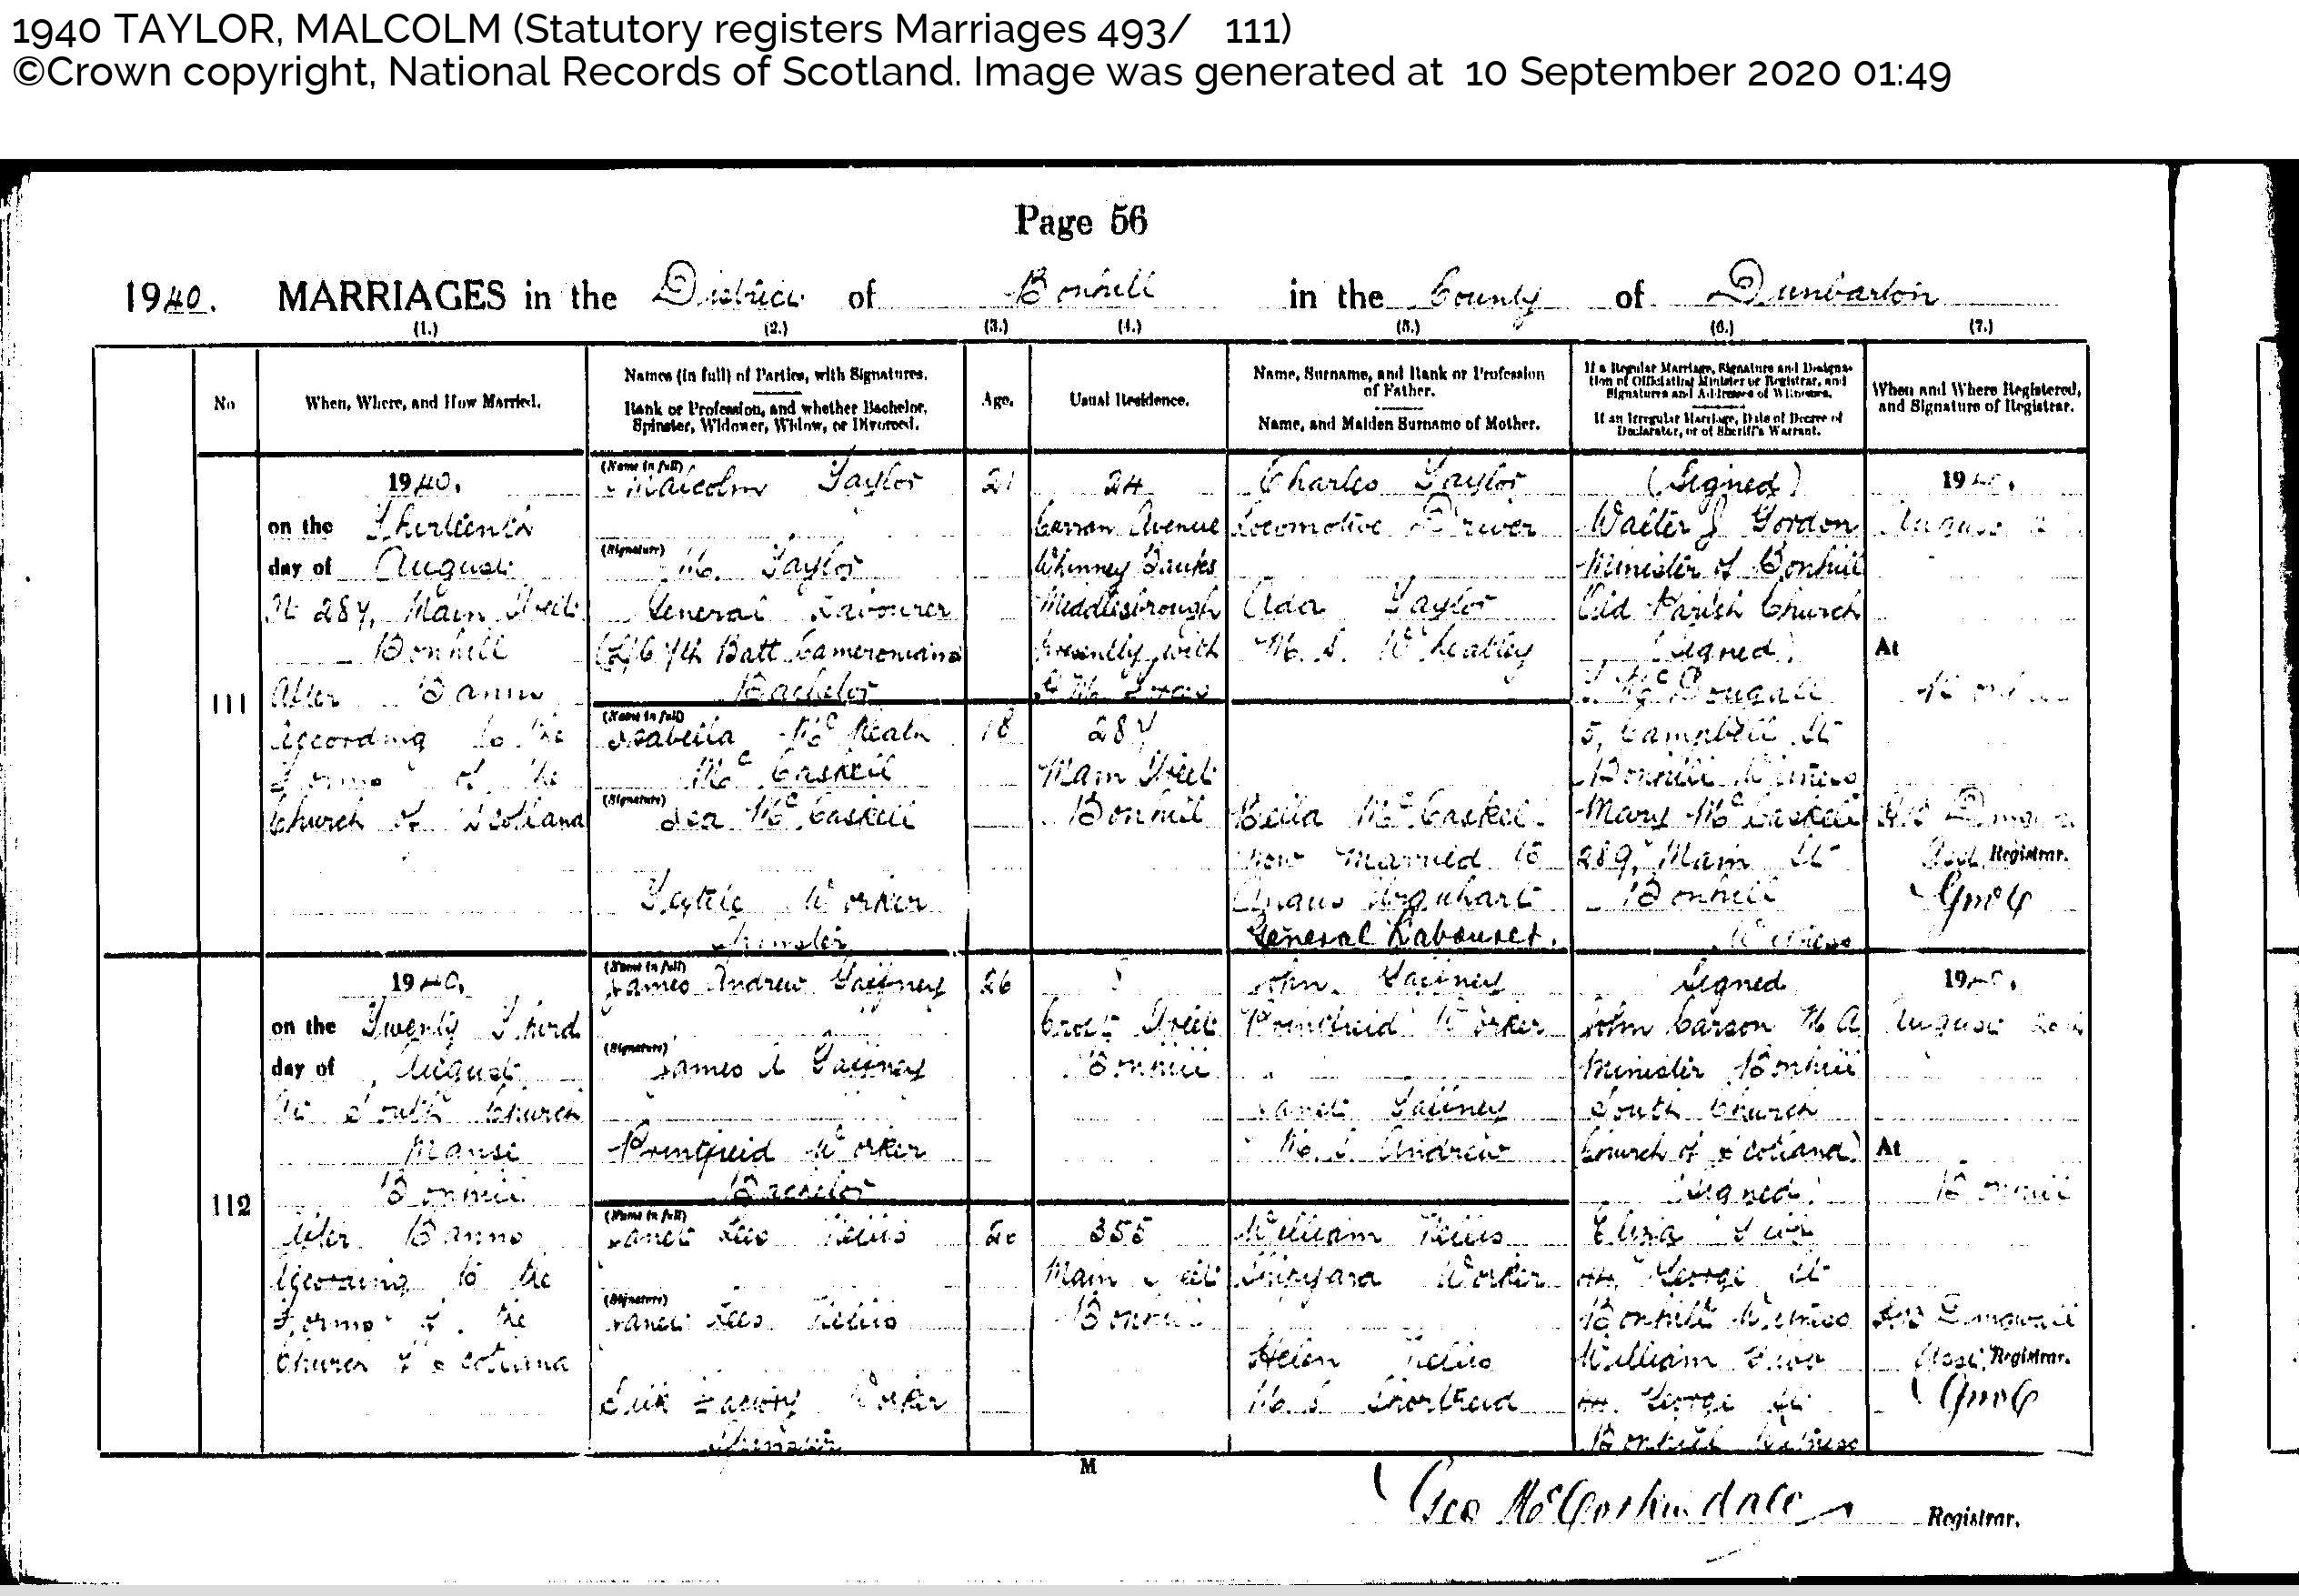 1940 TAYLOR, MALCOLM (Statutory registers Marriages 493/ 111)
©Crown copyright, National Records of Scotland. Image was generated at 10 September 2020 01:49
Page 56
1940. MARRIAGES in the District of Bonhill in the County of Dunbarton
(1.) (2.) (3.) (4.) (5.) (6.) (7.)
No
When, Where, and How Married.
Names (in full) of Parties, with Signatures.
Rank or Profession, and whether Bachelor,
Spinster, Widower, Widow, or Divorced.
Age.
Usual Residence.
Name, Surname, and Rank or Profession
of Father.
Name, and Maiden Surname of Mother.
If a Regular Marriage, Signature and Designa-
tion of Officiating Minister or Registrar, and
Signatures and Addresses of Witnesses.
If an Irregular Marriage, Date of Decree of
Declarator, or of Sheriff's Warrant.
When and Where Registered,
and Signature of Registrar.
111
1940.
on the Thirteenth
day of August
At 287, Main Street
Bonhill
After Banns
According to the
Forms of the
Church of Scotland
(Name in full)
Malcolm Taylor
(Signature)
M. Taylor
General Labourer
7th Batt. Cameronians
Bachelor
(Name in full)
Isabella
McCaskill
(Signature)
Isa McCaskill
Textile Worker
Spinster
21
18
24
Carron Avenue
Whinney Banks
Middlesbrough
presently with
287
Main Street
Bonhill
Charles Taylor
Locomotive Driver
Ada Taylor
M.S. Wheatley
McCaskill
now married to
Angus Urquhart
General Labourer.
(Signed)
Walter J Gordon
Minister of Bonhill
Old Parish Church
(Signed)
McDougall
5, Campbell St
Bonhill Witness
Mary McCaskill
289, Main St
Bonhill
Witness
1940.
August
At
Bonhill
Asst. Registrar.
112
1940.
on the Twenty Third
day of August
At South Church
Manse
Bonhill
After Banns
According to the
Forms of the
Church of Scotland
(Name in full)
James Andrew Gaffney
(Signature)
James A Gaffney
Printfield Worker
Bachelor
(Name in full)
Janet Lees
(Signature)
Janet Lees
Silk Factory Worker
Spinster
26
Street
Bonhill
355
Main Street
Bonhill
John Gaffney
Printfield Worker
Janet Gaffney
M.S. Andrew
William
Shipyard Worker
Helen
M.S. Shortreid
Signed
John Carson M.A
Minister Bonhill
South Church
(Church of Scotland)
(Signed)
Eliza
George St
Bonhill Witness
William
George St
Bonhill Witness
1940.
August
At
Bonhill
Asst. Registrar.
M
Geo McCorkindale Registrar.